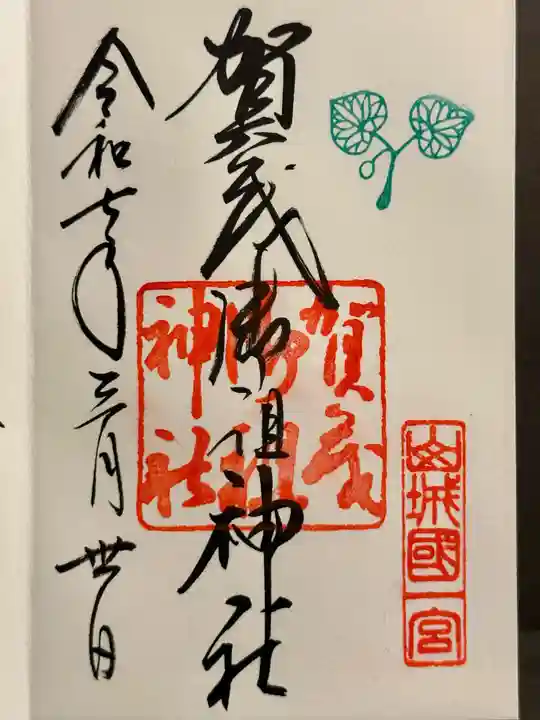 山城國
一宮
賀茂御祖神社
賀茂
御祖
神社
令和七年三月卅日